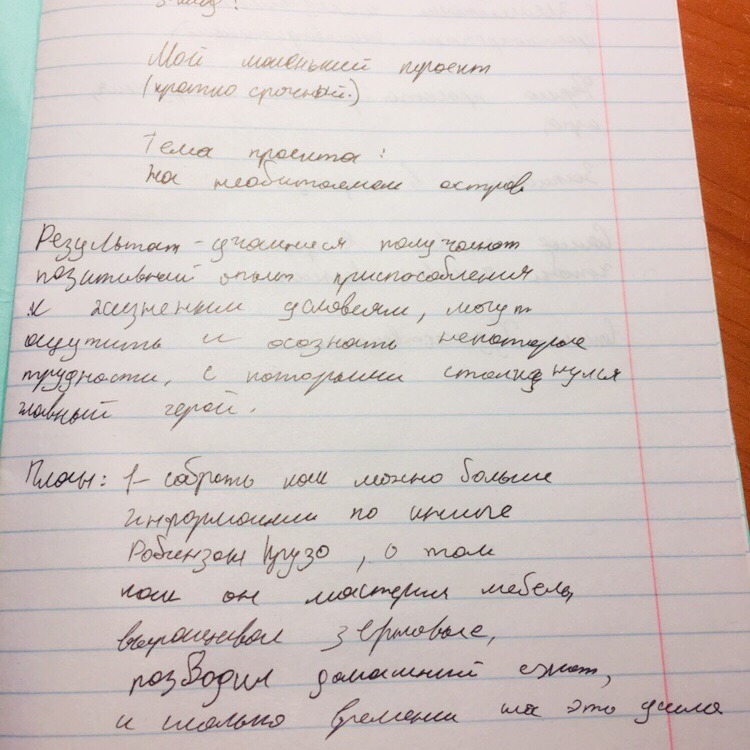 Мой маленький проект
(кратко срочный.)
Тема проекта:
На необитаемом остров
Результат - учащиеся получают
позитивный опыт приспособления
к жизненным условеям, могут
ощутить и осознать некоторые
трудности, с которыми столкнулся
главный герой.
План: 1- собрать как можно больше
информации по книге
Робинзон Крузо, о том
как он мастерил мебель,
выращивал зерновые,
разводил домашний скот,
и сколько времени на это ушло